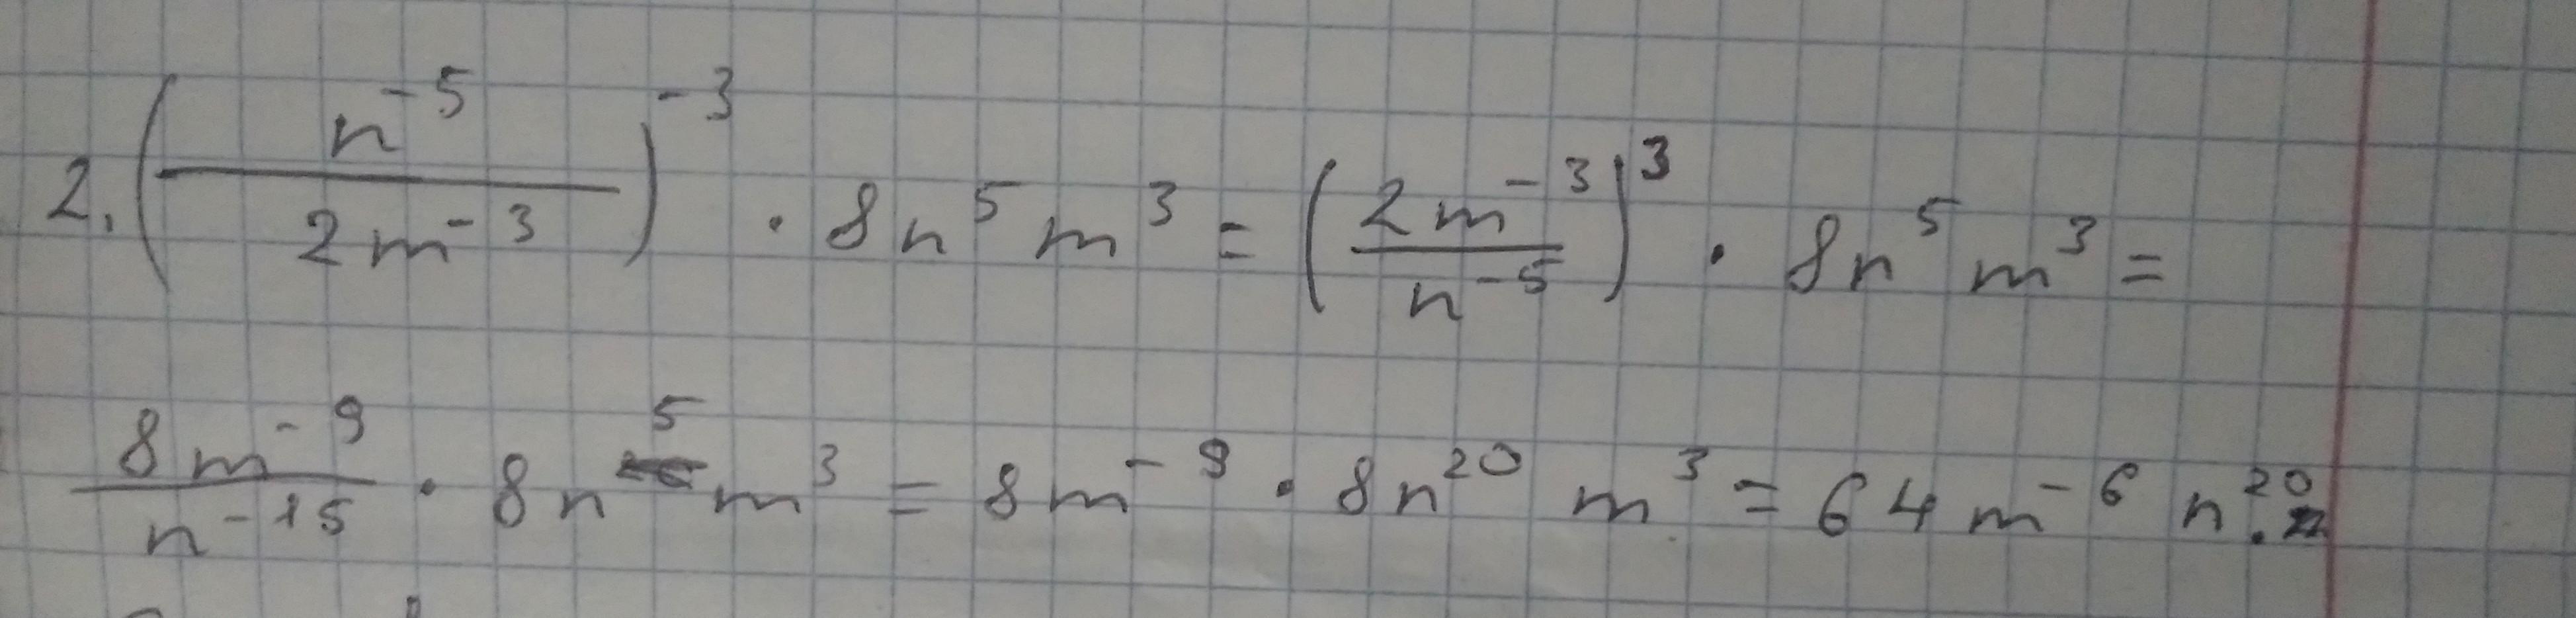 2. (n^-5 / 2m^-3)^-3 · 8n^5 m^3 = (2m^-3 / n^-5)^3 · 8n^5 m^3 =
8m^-9 / n^-15 · 8n^5 m^3 = 8m^-9 · 8n^20 m^3 = 64m^-6 n^20.